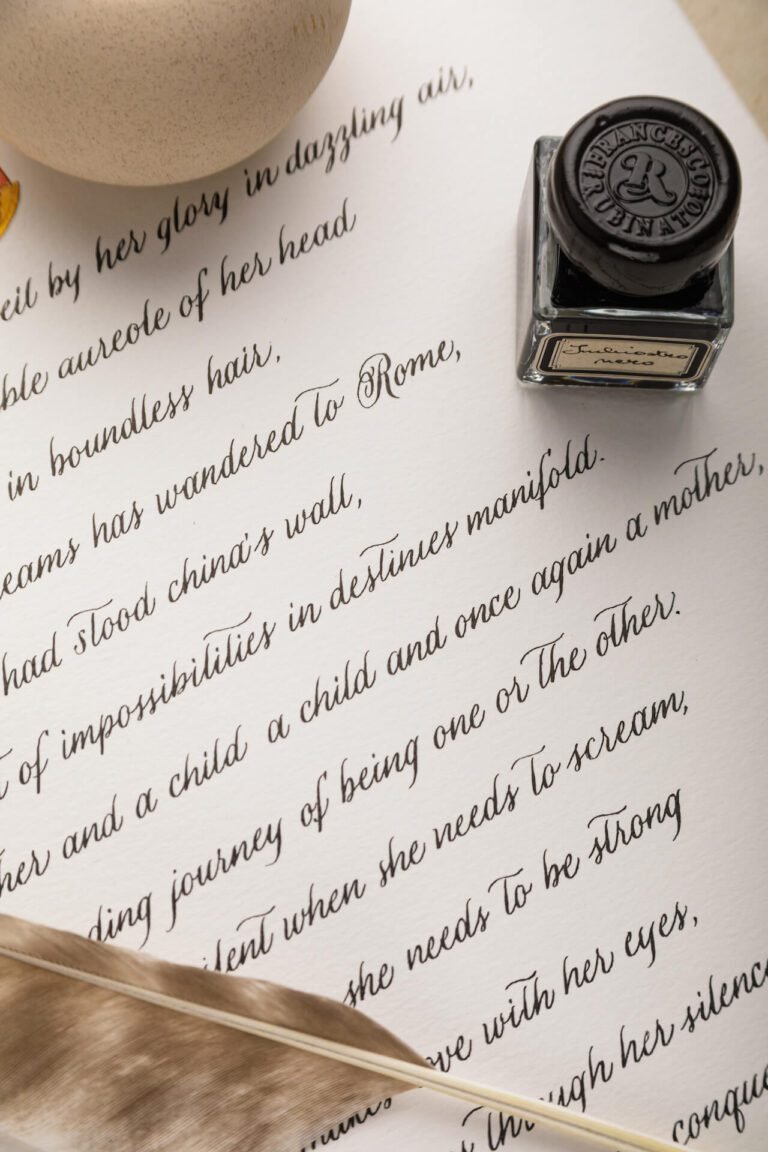 by her glory in dazzling air,
aureole of her head
in boundless hair,
has wandered to Rome,
had stood china's wall,
of impossibilities in destinies manifold.
and a child a child and once again a mother,
journey of being one or the other.
when she needs to scream,
she needs to be strong
with her eyes,
through her silence
FRANCESCO RUBINATO
R
Inchiostro
nero